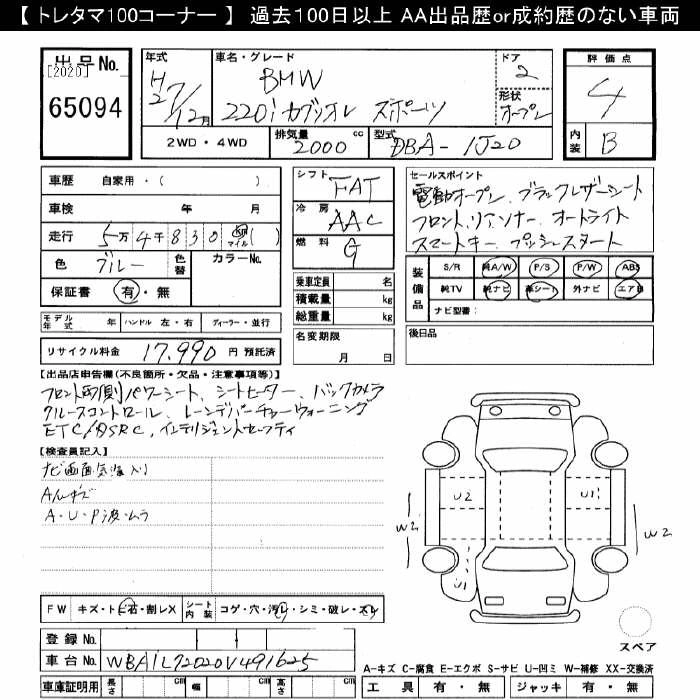 【 トレタマ100コーナー 】 過去100日以上 AA出品歴or成約歴のない車両
出品No.
[2020]
65094
年式
H27/12月
車名・グレード
BMW
220i カブリオレ スポーツ
ドア
2
形状
オープン
評価点
4
内装
B
2WD・4WD
排気量 2000 cc
型式 DBA-1J20
車歴 自家用・( )
車検 年 月
走行 5万4千830 km マイル ( )
色 ブルー 色替 カラーNo.
保証書 有・無
シフト FAT
冷房 AAC
燃料 G
乗車定員 名
積載量 kg
総重量 kg
名変期限
月 日
セールスポイント
電動オープン、ブラックレザーシート
フロント、リアソナー、オートライト
スマートキー、プッシュスタート
装備品
S/R 純A/W P/S P/W ABS
純TV 純ナビ 革シート 外ナビ エアB
ナビ型番:
後日品
モデル年式 年 ハンドル 左・右 ディーラー・並行
リサイクル料金 17,990 円 預託済
【出品店申告欄(不良箇所・欠品・注意事項等)】
フロント両側パワーシート、シートヒーター、バックカメラ
クルーズコントロール、レーンデパーチャーウォーニング
ETC/DSRC、インテリジェントセーフティ
【検査員記入】
ナビ画面気泡入り
A ルキズ
A・U・P波・ムラ
U2
U1
W2
W2
U1
FW キズ・トビ石・割レX シート内装 コゲ・穴・汚レ・シミ・破レ・スレ
登録No.
車台No. WBA1L72020V491625
車庫証明用 長さ cm 幅 cm 高さ cm
スペア
A-キズ C-腐食 E-エクボ S-サビ U-凹ミ W-補修 XX-交換済
工具 有・無 ジャッキ 有・無